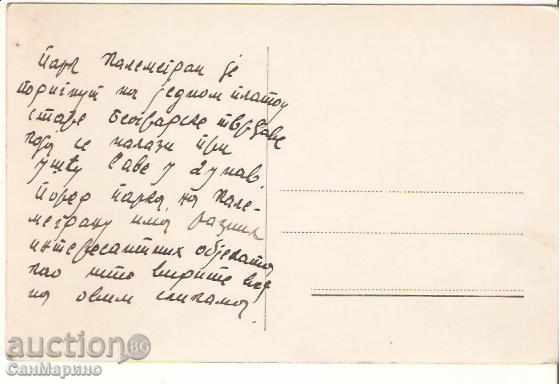 Парк Калемегдан је
подигнут на једном платоу
старе београдске тврђаве
која се налази при
ушћу Саве у Дунав.
Поред парка, на Кале-
мегдану има разних
интересантних објеката
као што видите
на овим сликама.
auction BG
СанМарино